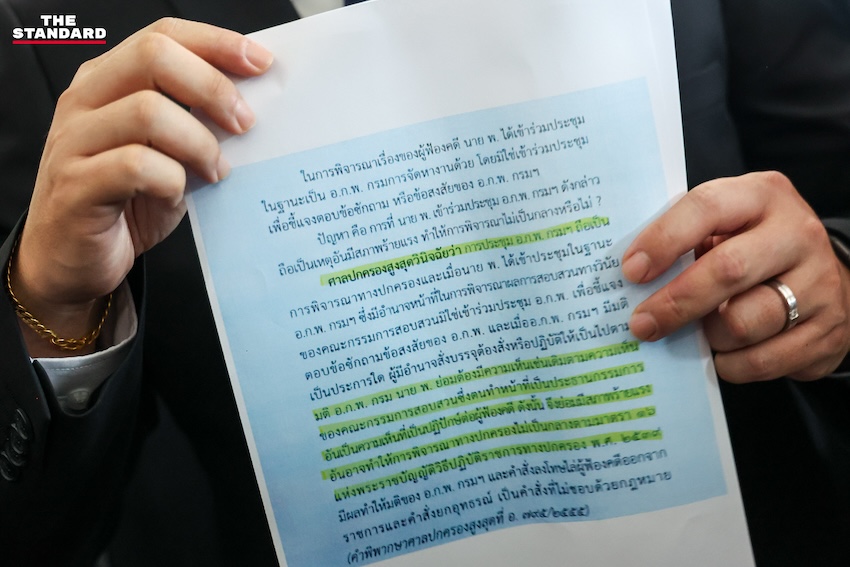 THE
STANDARD
ในการพิจารณาเรื่องของผู้ฟ้องคดี นาย พ. ได้เข้าร่วมประชุม
ในฐานะเป็น อ.ก.พ. กรมการจัดหางานด้วย โดยมิใช่เข้าร่วมประชุม
เพื่อชี้แจงตอบข้อซักถาม หรือข้อสงสัยของ อ.ก.พ. กรมฯ
ปัญหา คือ การที่ นาย พ. เข้าร่วมประชุม อ.ก.พ. กรมฯ ดังกล่าว
ถือเป็นเหตุอันมีสภาพร้ายแรง ทำให้การพิจารณาไม่เป็นกลางหรือไม่ ?
ศาลปกครองสูงสุดวินิจฉัยว่า การประชุม อ.ก.พ. กรมฯ ถือเป็น
การพิจารณาทางปกครองและเมื่อนาย พ. ได้เข้าประชุมในฐานะ
อ.ก.พ. กรมฯ ซึ่งมีอำนาจหน้าที่ในการพิจารณาผลการสอบสวนทางวินัย
ของคณะกรรมการสอบสวนมิใช่เข้าร่วมประชุม อ.ก.พ. เพื่อชี้แจง
ตอบข้อซักถามข้อสงสัยของ อ.ก.พ. และเมื่ออ.ก.พ. กรมฯ มีมติ
เป็นประการใด ผู้มีอำนาจสั่งบรรจุต้องสั่งหรือปฏิบัติให้เป็นไปตาม
มติ อ.ก.พ. กรม นาย พ. ย่อมต้องมีความเห็นเช่นเดิมตามความเห็น
ของคณะกรรมการสอบสวนซึ่งตนทำหน้าที่เป็นประธานกรรมการ
อันเป็นความเห็นที่เป็นปฏิปักษ์ต่อผู้ฟ้องคดี ดังนั้น จึงย่อมมีสภาพร้ายแรง
อันอาจทำให้การพิจารณาทางปกครองไม่เป็นกลางตามมาตรา ๑๖
แห่งพระราชบัญญัติวิธีปฏิบัติราชการทางปกครอง พ.ศ. ๒๕๓๙
มีผลทำให้มติของ อ.ก.พ. กรมฯ และคำสั่งลงโทษไล่ผู้ฟ้องคดีออกจาก
ราชการและคำสั่งยกอุทธรณ์ เป็นคำสั่งที่ไม่ชอบด้วยกฎหมาย
(คำพิพากษาศาลปกครองสูงสุดที่ อ. ๗๙๕/๒๕๕๕)